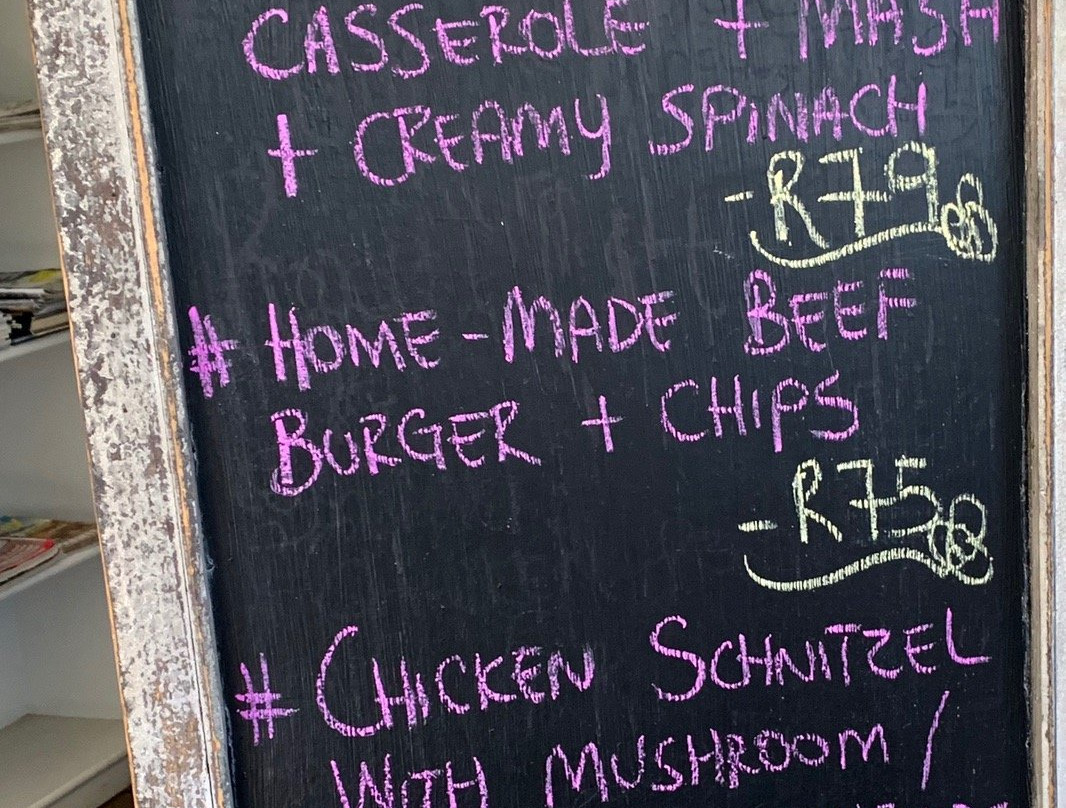 CASSEROLE + MASH
+ CREAMY SPINACH
- R79.00
# HOME-MADE BEEF
BURGER + CHIPS
- R75.00
# CHICKEN SCHNITZEL
WITH MUSHROOM /